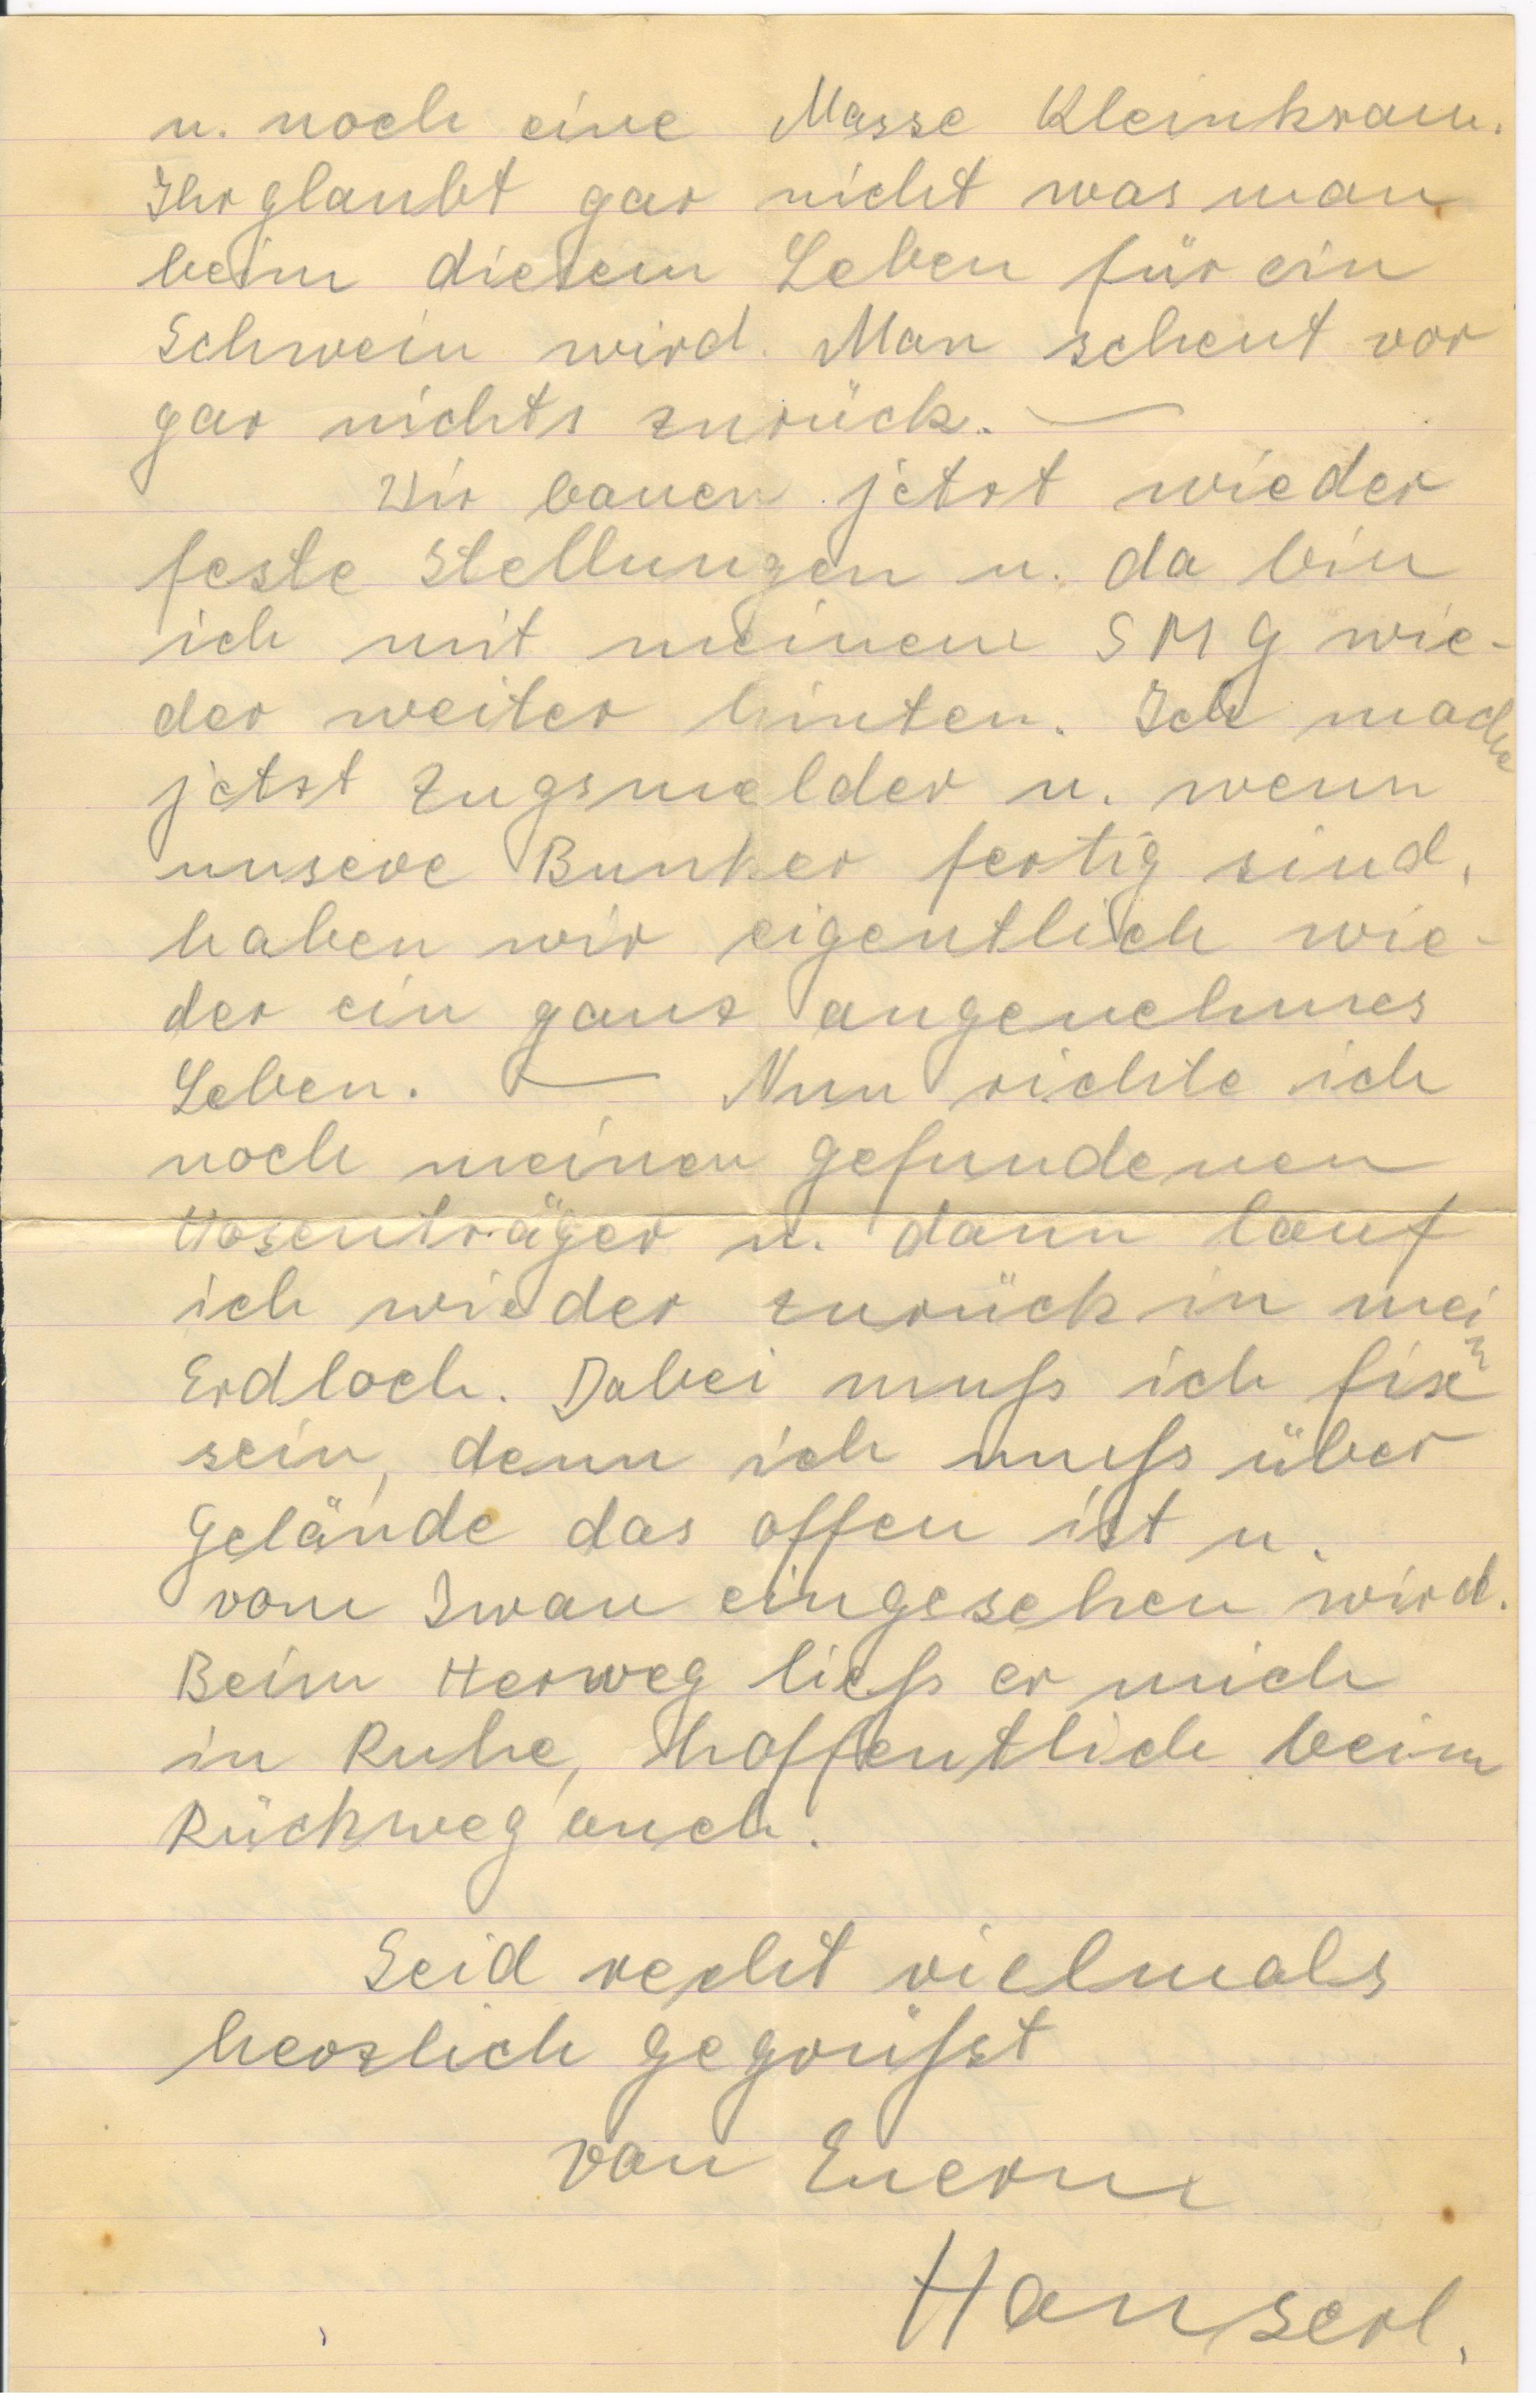 u. noch eine Masse Kleinkram.
Ihr glaubt gar nicht was man
beim diesem Leben für ein
Schwein wird. Man scheut vor
gar nichts zurück. —
Wir bauen jetzt wieder
feste Stellungen u. da bin
ich mit meinem SMG wie-
der weiter hinten. Ich mache
jetzt Zugsmelder u. wenn
unsere Bunker fertig sind,
haben wir eigentlich wie-
der ein ganz angenehmes
Leben. — Nun richte ich
noch meinen gefundenen
Hosenträger u. dann lauf
ich wieder zurück in mein
Erdloch. Dabei muß ich fix
sein, denn ich muß über
Gelände das offen ist u.
vom Iwan eingesehen wird.
Beim Herweg ließ er mich
in Ruhe, hoffentlich beim
Rückweg auch.
Seid recht vielmals
herzlich gegrüßt
von Euerm
Hanserl.